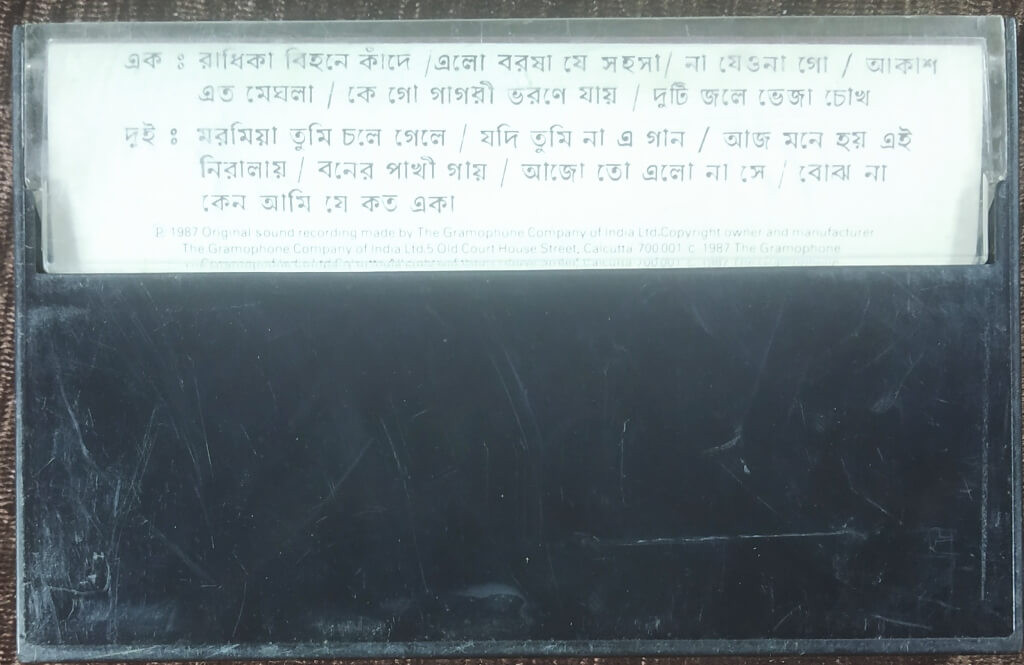 এক : রাধিকা বিহনে কাঁদে /এলো বরষা যে সহসা/ না যেওনা গো / আকাশ
এত মেঘলা / কে গো গাগরী ভরণে যায় / দুটি জলে ভেজা চোখ
দুই : মরমিয়া তুমি চলে গেলে / যদি তুমি না এ গান / আজ মনে হয় এই
নিরালায় / বনের পাখী গায় / আজো তো এলো না সে / বোঝ না
কেন আমি যে কত একা
℗ 1987 Original sound recording made by The Gramophone Company of India Ltd.Copyright owner and manufacturer
The Gramophone Company of India Ltd.5 Old Court House Street, Calcutta 700 001 c 1987 The Gramophone